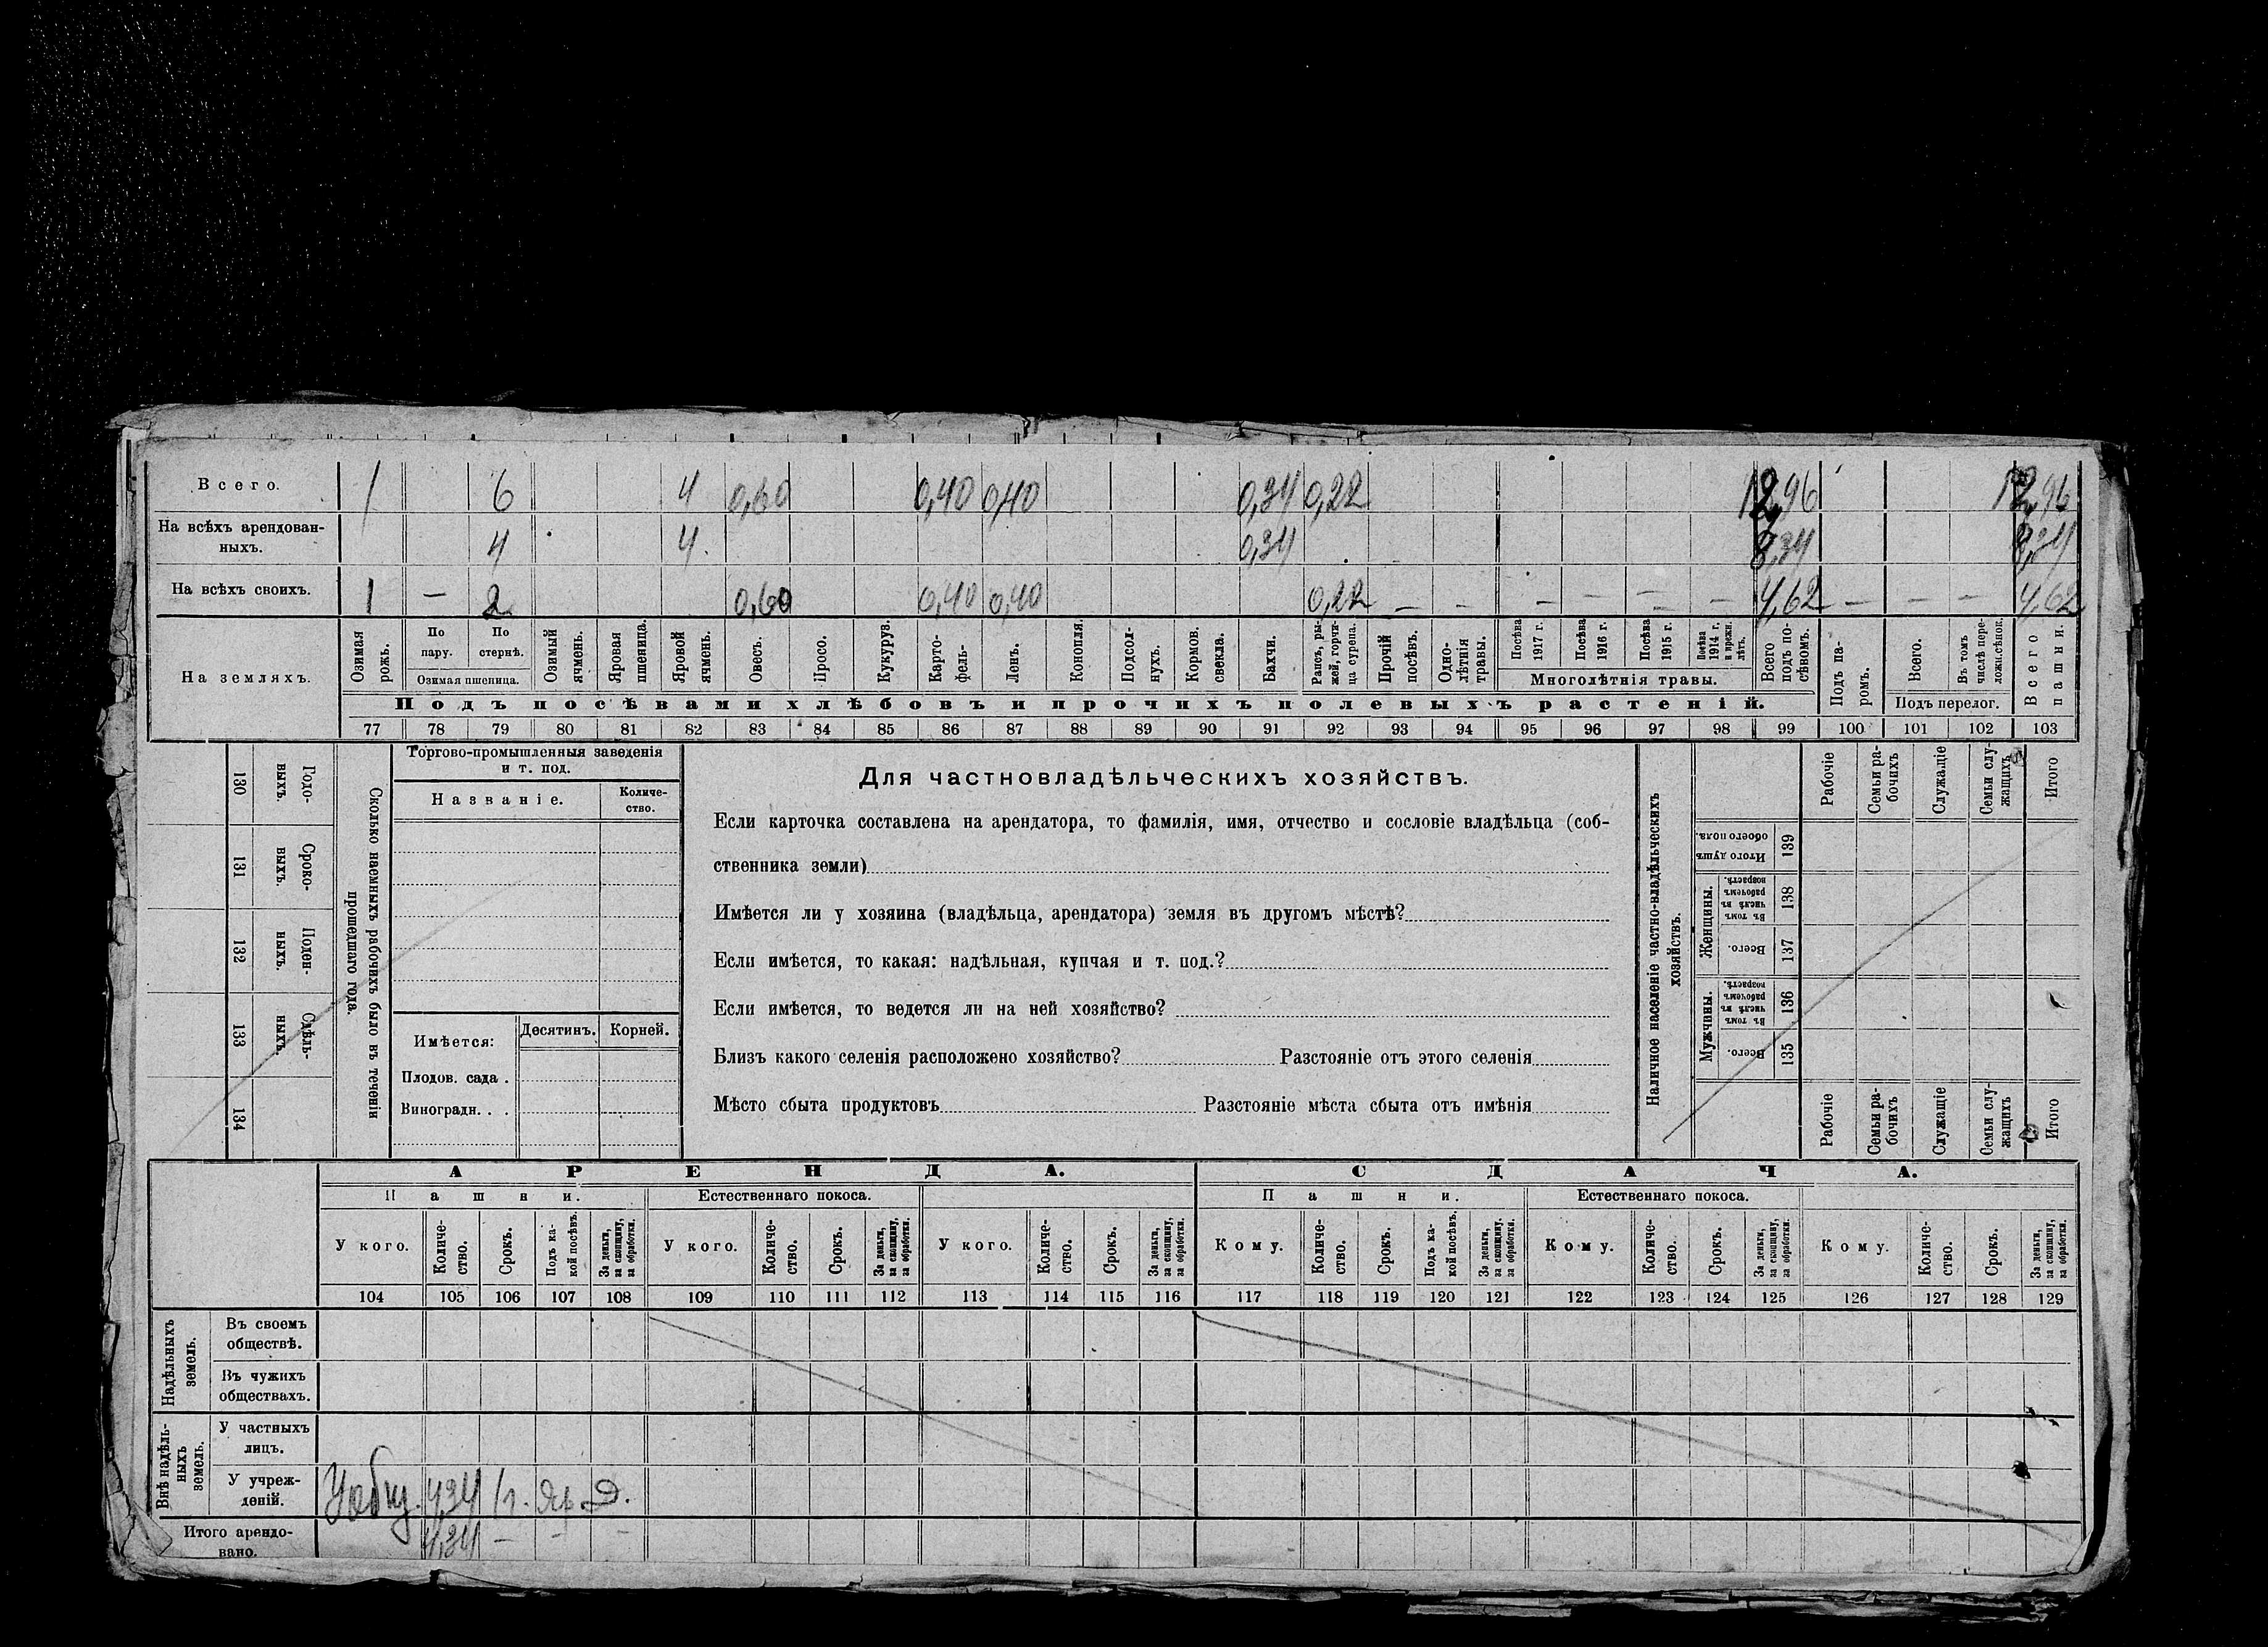 Всего. 1 6 4 0,60 0,40 0,40 0,34 0,22 12,96 12,96
На всѣхъ арендован-
ныхъ. 4 4. 0,34 8,34 8,34
На всѣхъ своихъ. 1 — 2 0,60 0,40 0,40 0,22 — — — — — — 4,62 — — — 4,62
На земляхъ.
Озимая рожь.
По пару.
По стернѣ.
Озимая пшеница.
Озимый ячмень.
Яровая пшеница.
Яровой ячмень.
Овесъ.
Просо.
Кукуруз.
Карто-
фель-
Ленъ.
Конопля.
Подсол-
нухъ.
Кормов.
свекла.
Бахчи.
Рапсъ, ры-
жей, горчи-
ца сурепа.
Прочій
посѣвъ.
Одно-
лѣтнія
травы.
Посѣва
1917 г.
Посѣва
1916 г.
Посѣва
1915 г.
Посѣва
1914 г.
и прежн.
лѣтъ.
Многолѣтнія травы.
Всего
подъ по-
сѣвомъ.
Подъ па-
ромъ.
Всего.
Въ томъ
числѣ пере-
ложн. сѣнок.
Подъ перелог.
Всего
пашни.
Подъ посѣвами хлѣбовъ и прочихъ полевыхъ растеній.
77 78 79 80 81 82 83 84 85 86 87 88 89 90 91 92 93 94 95 96 97 98 99 100 101 102 103
130 Годо-
выхъ.
131 Сроко-
выхъ.
132 Поден-
ныхъ.
133 Сдѣль-
ныхъ.
134
Сколько наемныхъ рабочихъ было въ теченіи
прошедшаго года.
Торгово-промышленныя заведенія
и т. под.
Названіе.
Количе-
ство.
Имѣется: Десятинъ. Корней.
Плодов. сада .
Виноградн. . .
Для частновладѣльческихъ хозяйствъ.
Если карточка составлена на арендатора, то фамилія, имя, отчество и сословіе владѣльца (соб-
ственника земли)
Имѣется ли у хозяина (владѣльца, арендатора) земля въ другомъ мѣстѣ?
Если имѣется, то какая: надѣльная, купчая и т. под.?
Если имѣется, то ведется ли на ней хозяйство?
Близъ какого селенія расположено хозяйство? Разстояніе отъ этого селенія
Мѣсто сбыта продуктовъ Разстояніе мѣста сбыта отъ имѣнія
Наличное населеніе частно-владѣльческихъ
хозяйствъ.
Рабочіе
Семьи ра-
бочихъ
Служащіе
Семьи слу-
жащихъ
Итого
Итого душъ
обоего пола.
139
Женщины.
Въ томъ
числѣ въ
рабочемъ
возрастѣ.
138
Всего.
137
Мужчины.
Въ томъ
числѣ въ
рабочемъ
возрастѣ.
136
Всего.
135
Рабочіе
Семьи ра-
бочихъ
Служащіе
Семьи слу-
жащихъ
Итого
АРЕНДА. СДАЧА.
Пашни. Естественнаго покоса. Пашни. Естественнаго покоса.
У кого.
Количе-
ство.
Срокъ.
Подъ ка-
кой посѣвъ.
За деньги,
за скопщину,
за обработки.
У кого.
Количе-
ство.
Срокъ.
За деньги,
за скопщину,
за обработки.
У кого.
Количе-
ство.
Срокъ.
За деньги,
за скопщину,
за обработки.
Кому.
Количе-
ство.
Срокъ.
Подъ ка-
кой посѣвъ.
За деньги,
за скопщину.
за обработки.
Кому.
Количе-
ство.
Срокъ.
За деньги,
за скопщину,
за обработки.
Кому.
Количе-
ство.
Срокъ.
За деньги,
за скопщину,
за обработки.
104 105 106 107 108 109 110 111 112 113 114 115 116 117 118 119 120 121 122 123 124 125 126 127 128 129
Надѣльныхъ
земель.
Въ своемъ
обществѣ.
Въ чужихъ
обществахъ.
Внѣ надѣль-
ныхъ
земель.
У частныхъ
лицъ.
У учреж-
деній. У общ. 4,34 1 г. Яр. Д.
Итого арендо-
вано. 4,34 — — —